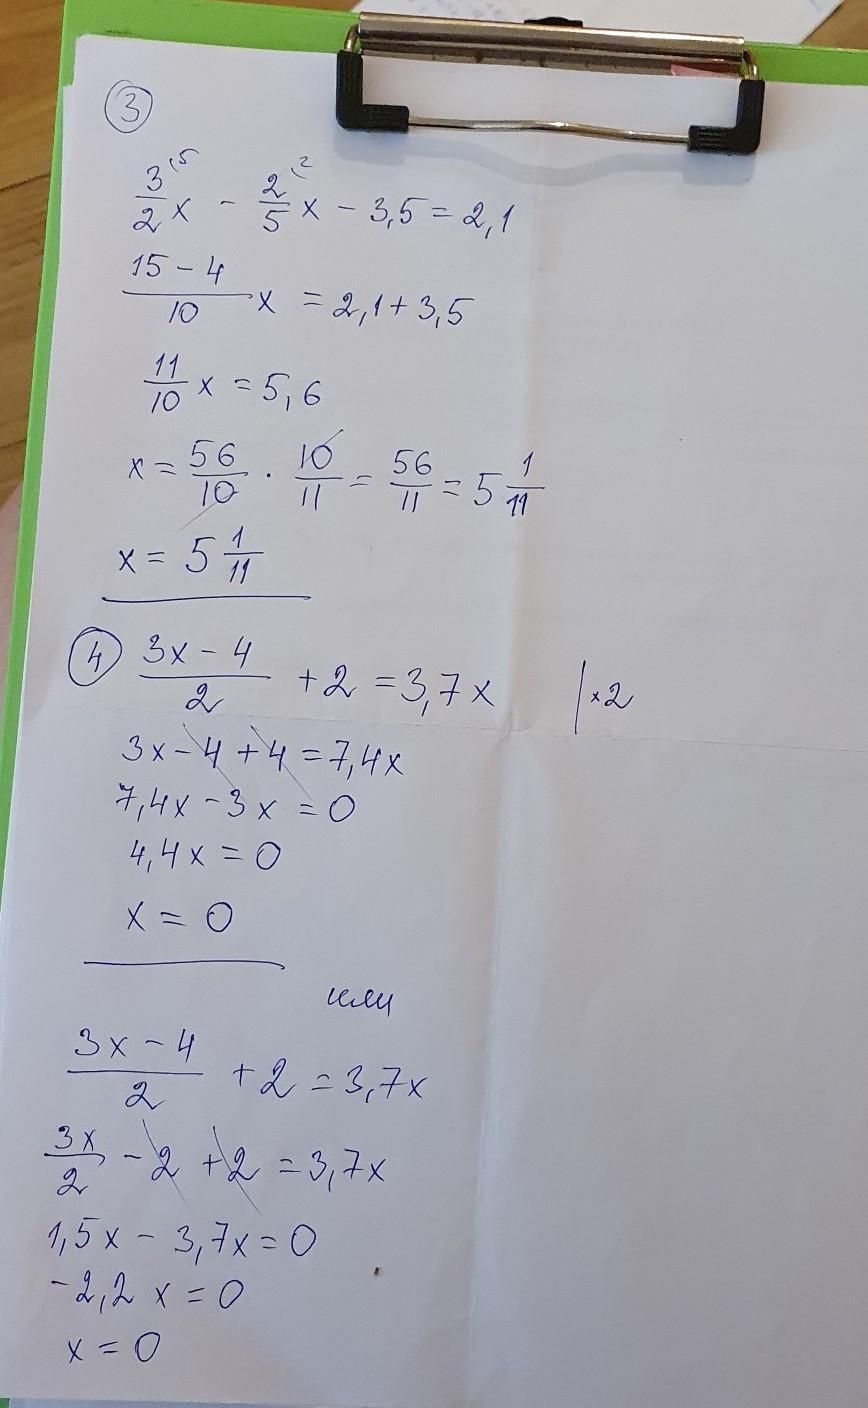 3
3/2 ⁽⁵ x - 2/5 ⁽² x - 3,5 = 2,1
(15 - 4)/10 x = 2,1 + 3,5
11/10 x = 5,6
x = 56/10 · 10/11 = 56/11 = 5 1/11
x = 5 1/11
4 (3x - 4)/2 + 2 = 3,7x |×2
3x - 4 + 4 = 7,4x
7,4x - 3x = 0
4,4x = 0
x = 0
или
(3x - 4)/2 + 2 = 3,7x
3x/2 - 2 + 2 = 3,7x
1,5x - 3,7x = 0
-2,2 x = 0
x = 0